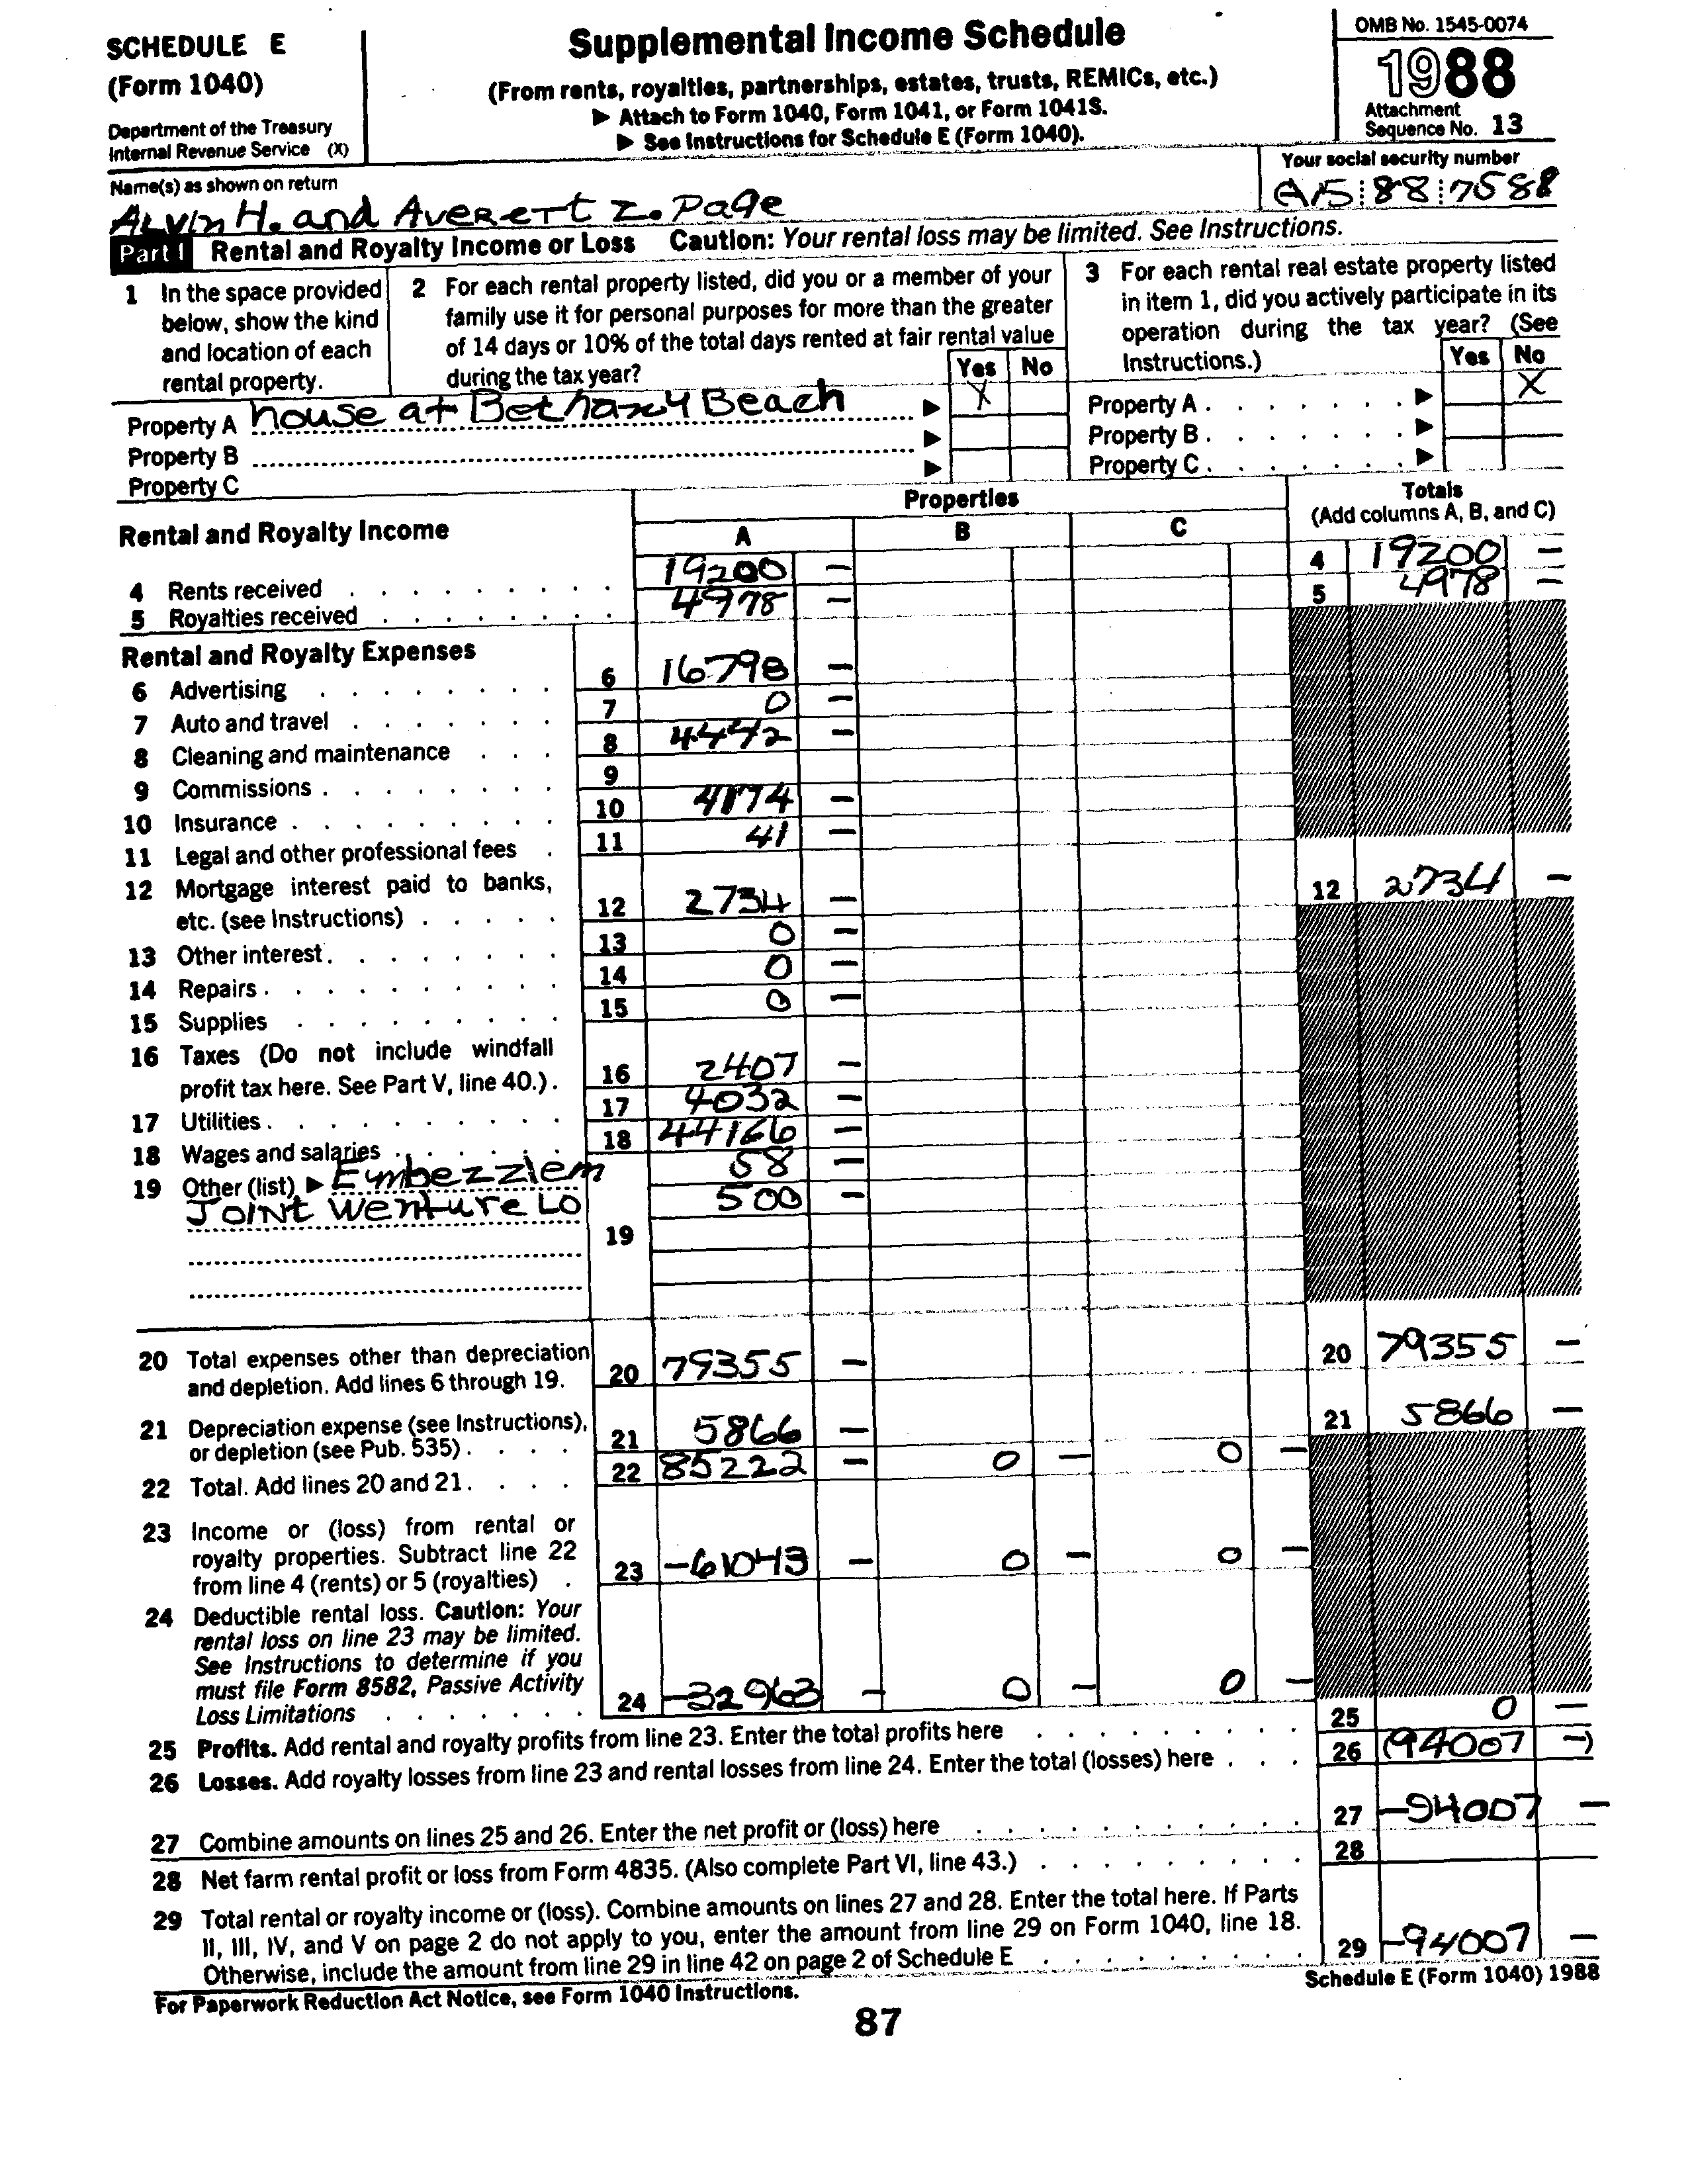 SCHEDULE E
(Form 1040)
Department of the Treasury
Internal Revenue Service (X)
Supplemental Income Schedule
(From rents, royalties, partnerships, estates, trusts, REMICs, etc.)
▶ Attach to Form 1040, Form 1041, or Form 1041S.
▶ See Instructions for Schedule E (Form 1040).
OMB No. 1545-0074
1988
Attachment
Sequence No. 13
Name(s) as shown on return
ALVin H. and AVERETT Z. Page
Your social security number
88 7588
Part I Rental and Royalty Income or Loss Caution: Your rental loss may be limited. See Instructions.
1 In the space provided
below, show the kind
and location of each
rental property.
2 For each rental property listed, did you or a member of your
family use it for personal purposes for more than the greater
of 14 days or 10% of the total days rented at fair rental value
during the tax year?
Yes No
3 For each rental real estate property listed
in item 1, did you actively participate in its
operation during the tax year? (See
Instructions.)
Yes No
Property A house at Bethany Beach ▶ X
Property B ▶
Property C ▶
Property A . . . . . . . ▶ X
Property B . . . . . . . ▶
Property C . . . . . . . ▶
Rental and Royalty Income
Properties
A B C
Totals
(Add columns A, B, and C)
4 Rents received 19200 – 4 19200 –
5 Royalties received 4978 – 5 4978 –
Rental and Royalty Expenses
6 Advertising 6 16798 –
7 Auto and travel 7 0 –
8 Cleaning and maintenance 8 4442 –
9 Commissions 9
10 Insurance 10 4174 –
11 Legal and other professional fees 11 41 –
12 Mortgage interest paid to banks,
etc. (see Instructions) 12 2734 – 12 2734 –
13 Other interest 13 0 –
14 Repairs 14 0 –
15 Supplies 15 0 –
16 Taxes (Do not include windfall
profit tax here. See Part V, line 40.) 16 2407 –
17 Utilities 17 4032 –
18 Wages and salaries 18 44166 –
19 Other (list) ▶ Embezzlem 58 –
JOINT Wenture LO 500 –
19
20 Total expenses other than depreciation
and depletion. Add lines 6 through 19. 20 79355 – 20 79355 –
21 Depreciation expense (see Instructions),
or depletion (see Pub. 535) 21 5866 – 21 5866 –
22 Total. Add lines 20 and 21 22 85222 – 0 – 0 –
23 Income or (loss) from rental or
royalty properties. Subtract line 22
from line 4 (rents) or 5 (royalties) 23 -61043 – 0 – 0 –
24 Deductible rental loss. Caution: Your
rental loss on line 23 may be limited.
See Instructions to determine if you
must file Form 8582, Passive Activity
Loss Limitations 24 -32963 – 0 – 0 –
25 Profits. Add rental and royalty profits from line 23. Enter the total profits here 25 0 –
26 Losses. Add royalty losses from line 23 and rental losses from line 24. Enter the total (losses) here 26 (94007 –)
27 Combine amounts on lines 25 and 26. Enter the net profit or (loss) here 27 -94007 –
28 Net farm rental profit or loss from Form 4835. (Also complete Part VI, line 43.) 28
29 Total rental or royalty income or (loss). Combine amounts on lines 27 and 28. Enter the total here. If Parts
II, III, IV, and V on page 2 do not apply to you, enter the amount from line 29 on Form 1040, line 18.
Otherwise, include the amount from line 29 in line 42 on page 2 of Schedule E 29 -94007 –
For Paperwork Reduction Act Notice, see Form 1040 Instructions.
Schedule E (Form 1040) 1988
87